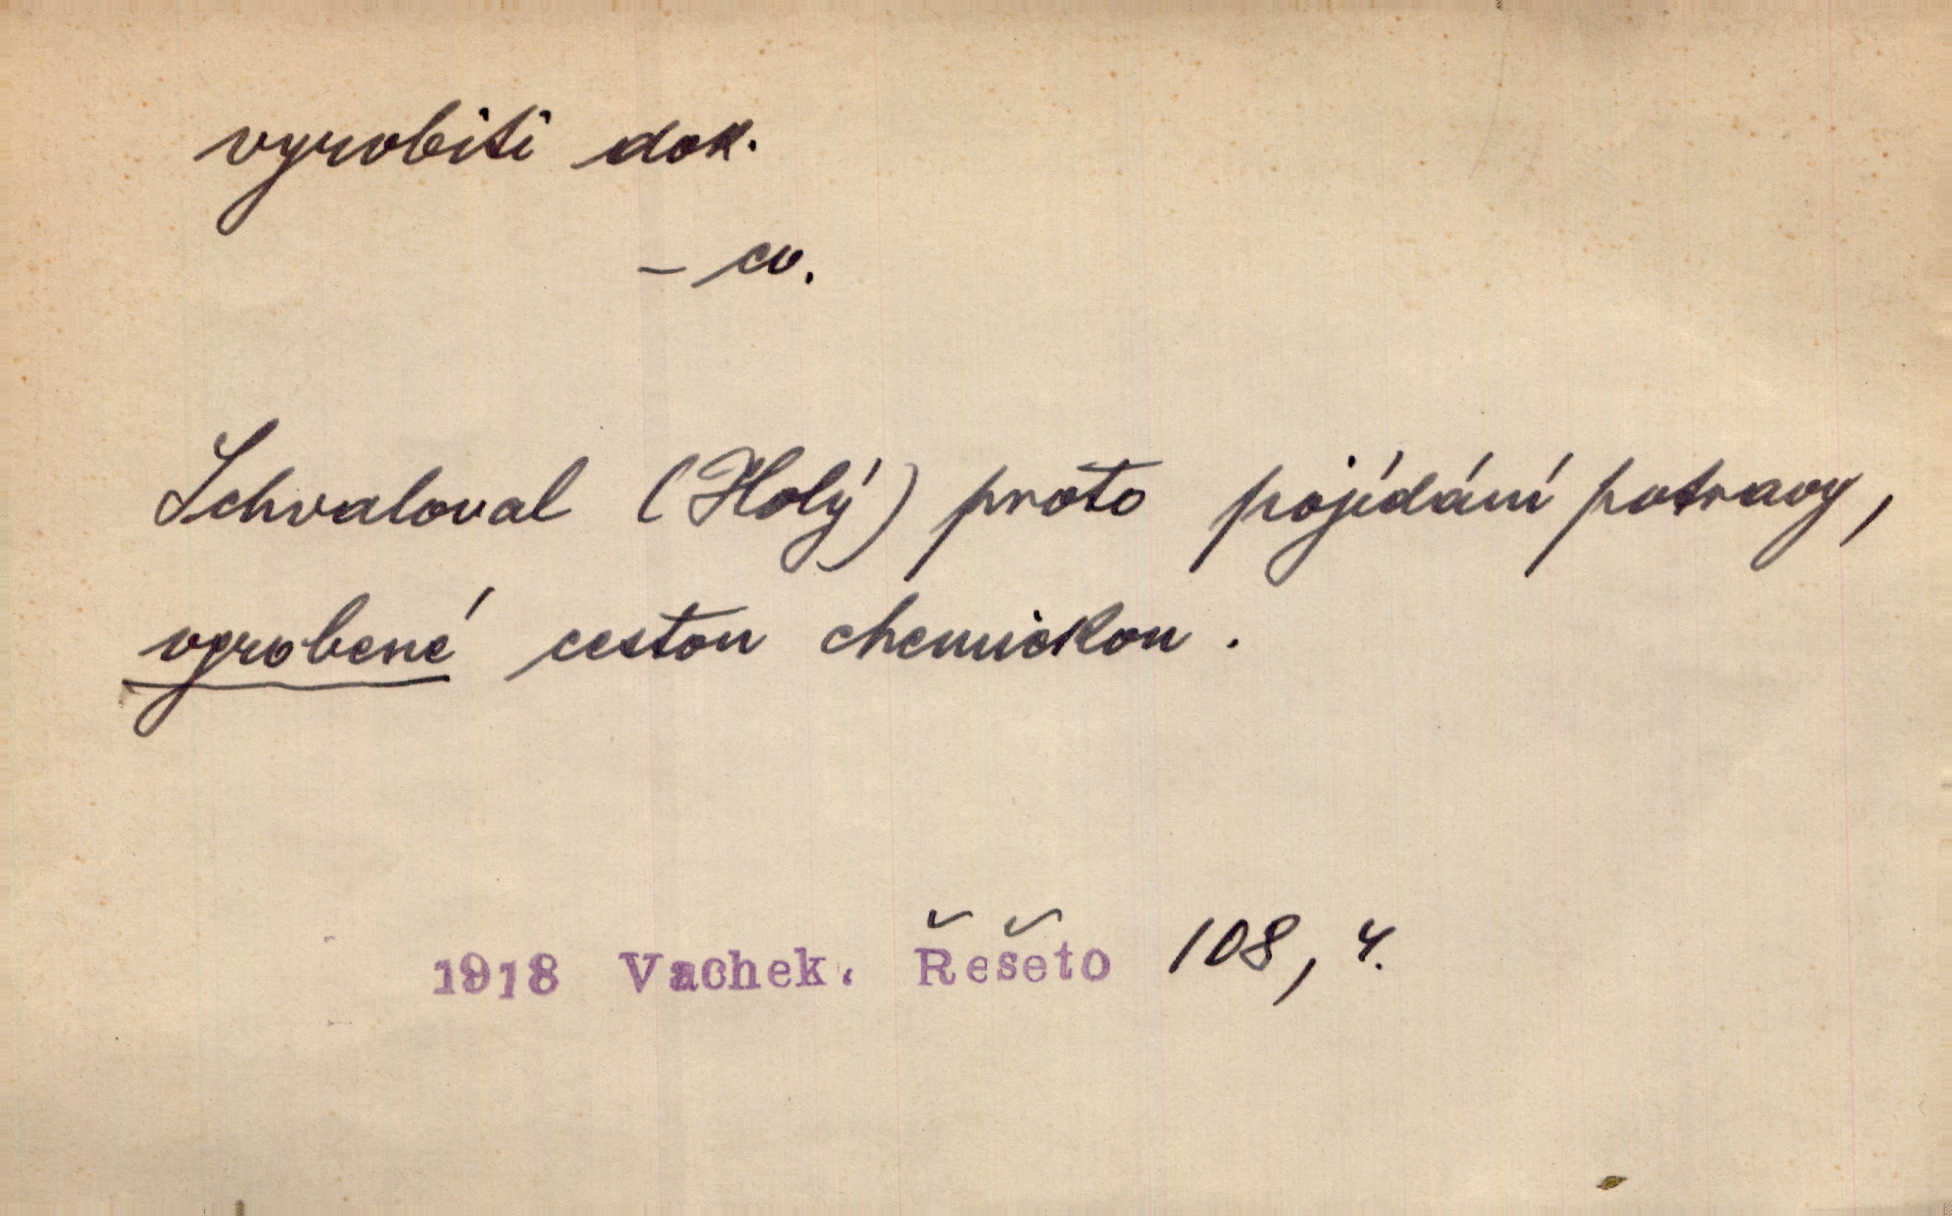 vyrobiti dok.
– co.
Schvaloval (Holý) proto pojídání potravy,
vyrobené cestou chemickou.
1918 Vachek. Řešeto 108, 4.